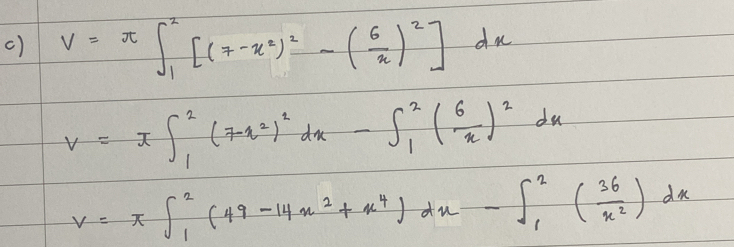 c) V = π ∫₁² [(7-x²)² - (6/x)²] dx
V = π ∫₁² (7-x²)² dx - ∫₁² (6/x)² dx
V = π ∫₁² (49 - 14x² + x⁴) dx - ∫₁² (36/x²) dx